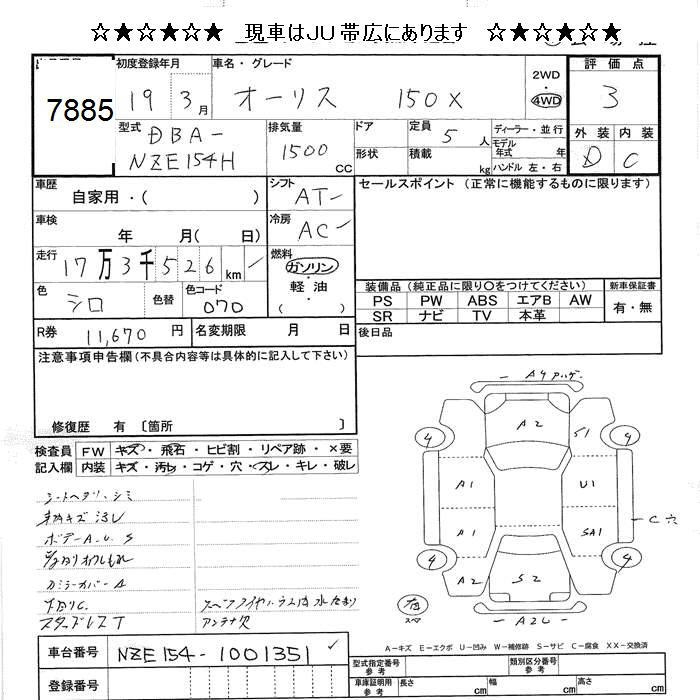 ☆★☆★☆★ 現車はJU帯広にあります ☆★☆★☆★
7885
初度登録年月 車名・グレード 2WD 評価点
19 3月 オーリス 150X 4WD 3
型式 排気量 ドア 定員 ディーラー・並行 外装 内装
DBA- 5人 モデル年式 年 D C
NZE154H 1500cc 形状 積載 kg ハンドル 左・右
車歴 シフト セールスポイント (正常に機能するものに限ります)
自家用・( ) AT-
車検 冷房
年 月( 日) AC-
走行 燃料
17万3千526km ガソリン
色 色コード ・軽油・
シロ 色替 070 ( )
装備品 (純正品に限り○をつけてください) 新車保証書
PS PW ABS エアB AW 有・無
SR ナビ TV 本革
R券 11,670円 名変期限 月 日 後日品
注意事項申告欄 (不具合内容等は具体的に記入して下さい)
修復歴 有 〔箇所 〕
検査員 FW キズ・飛石・ヒビ割・リペア跡・×要
記入欄 内装 キズ・汚レ・コゲ・穴・スレ・キレ・破レ
シートヘタリ・シミ
内キズ汚レ
ボデーA.U.S
カミラーカバーA
下回りC.
スタッドレスT
アンテナ欠
A4
A2
4 S1 4
A1 U1
A1 SA1
C穴
4 4
A2 S2
A2U
A-キズ E-エクボ U-凹み W-補修跡 S-サビ C-腐食 XX-交換済
車台番号 NZE154-1001351
登録番号
型式指定番号 参考 類別区分番号 参考
車庫証明用 参考 長さ cm 幅 cm 高さ cm